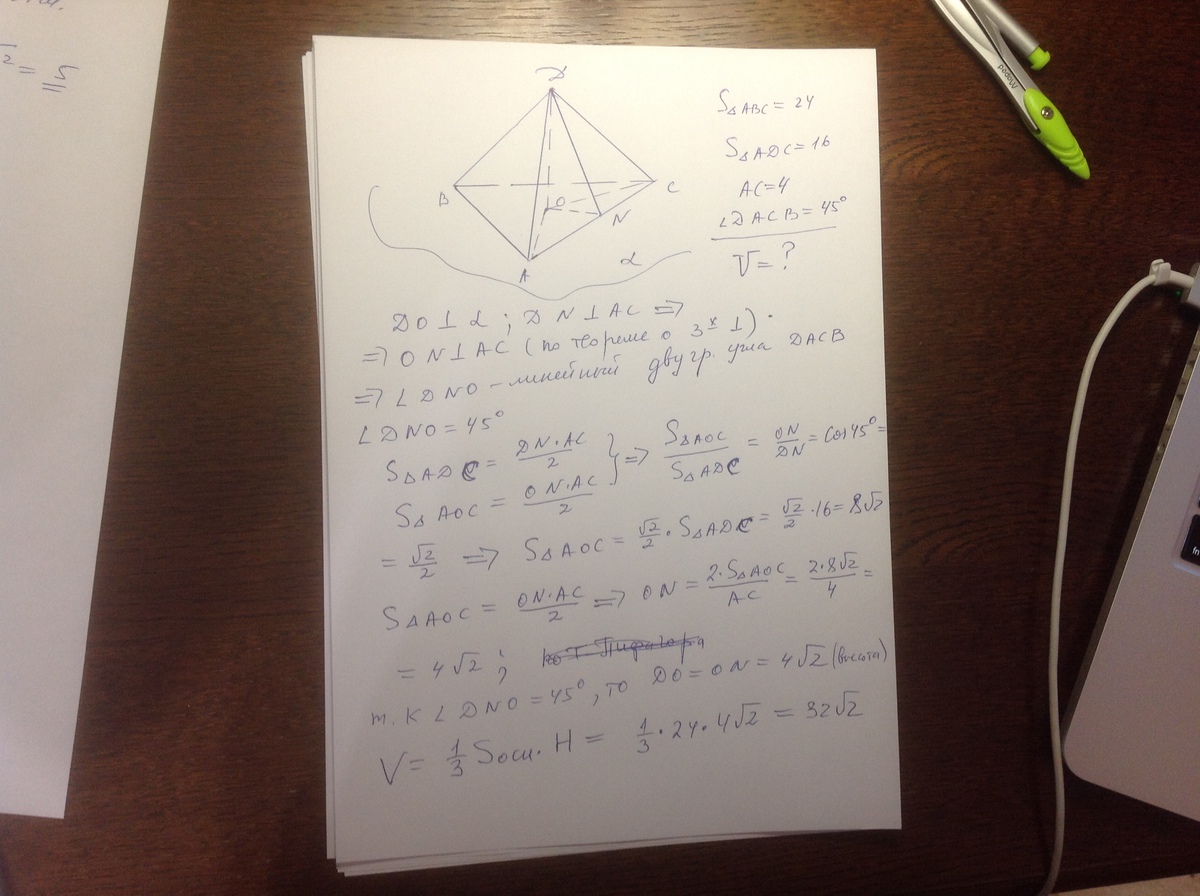 √2 = 5
D
B
O
C
N
A
α
S△ABC = 24
S△ADC = 16
AC = 4
∠DACB = 45°
V = ?
DO ⊥ α ; DN ⊥ AC ⇒
⇒ ON ⊥ AC (по теореме о 3х ⊥)
⇒ ∠DNO – линейный двугр. угла DACB
∠DNO = 45°
S△ADC = DN·AC/2 } ⇒ S△AOC/S△ADC = ON/DN = Cos 45° =
S△AOC = ON·AC/2
= √2/2 ⇒ S△AOC = √2/2 · S△ADC = √2/2 · 16 = 8√2
S△AOC = ON·AC/2 ⇒ ON = 2·S△AOC/AC = 2·8√2/4 =
= 4√2 ;
т.к ∠DNO = 45°, то DO = ON = 4√2 (высота)
V = 1/3 Sосн. H = 1/3 · 24 · 4√2 = 32√2
Maped
fn